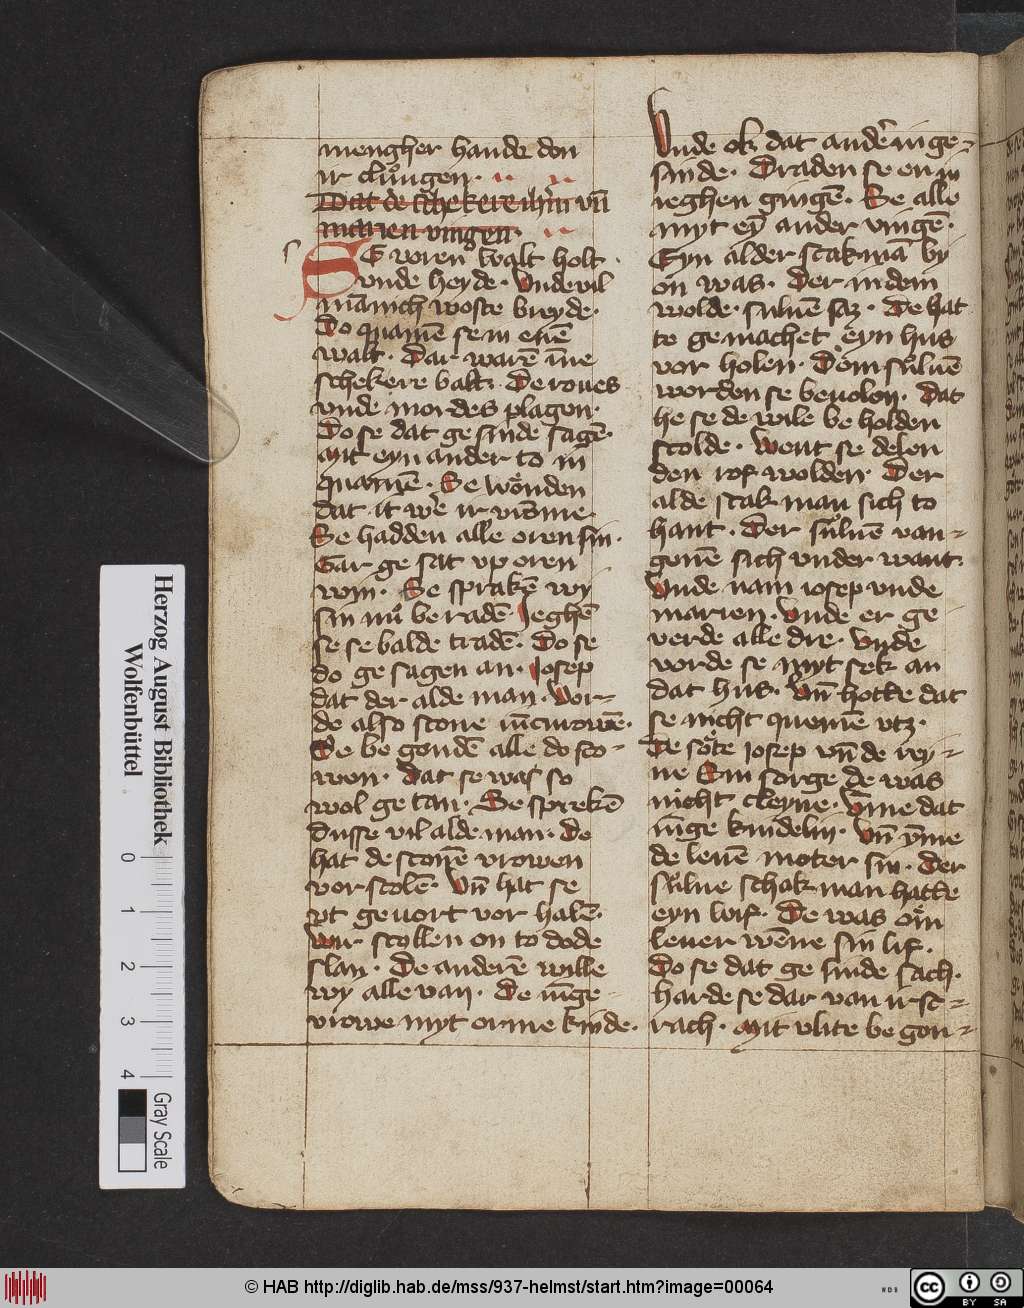 mengher hande don
ir clůngen.
Dat de schekere ihm vn̄
marien vingen.
s
SE voren walt holt.
vnde heyde. Vnde vil
mānich woste breyde.
Do quamē se in enē
walt. Dar warē īne
schekere balt. De roues
vnde mordes plagen.
Do se dat gesinde sagē.
Mit eyn ander to in
quamē. Se wonden
dat it wē ir vrōme.
Se hadden alle oren sin.
Gar ge sat vp oren
win. Se sprakē wy
sin nů be radē. Ieghē
se se balde tradē. Do se
do ge sagen an. Iosep
dat der alde man. Vor-
de also scone iūcvrowē.
De be gondē alle do sco-
wen. Dat se was so
wol ge tan. Se sprekē
Dusse vil alde man. De
hat de sconē vrowen
vor stolē. Vn̄ hat se
vt geuort vor halē.
Wir scollen on to dode
slan. De anderē wille
wy alle van. De iūge-
vrowe myt orme kinde.
Vnde ok dat ander inge-
sinde. Draden se en in
ieghen gingē. Se alle
myt eȳ ander vingē.
Eyn alder scakmā by
on was. Der in dem
wolde. suluē saz. De hat
te gemachet eyn hus
vor holen. Dōm suluē
worden se beuolen. Dat
he se de wile be holden
scolde. Went se delen
den rof wolden. Der
alde scak man sich to
hant. Der suluē van-
genē sich vnder want.
Vnde nam iosep vnde
marien. Vnde er ge
verde alle dre. Vnde
vorde se myt sek an
dat hus. Vn̄ hotte dat
se nicht quemē vtz.
De sote iosep vn̄ de rey-
ne Ein sorge de was
nicht cleyne. Vme dat
iūge kindelin. Vn̄ v̄me
de leuē moter sin. Der
sulue schak man hatte
eyn wif. De was om
leuer wēne sin lif.
Do se dat ge sinde sach.
harde se dar van irsc-
rach. Mit vlite be gon-
Herzog August Bibliothek
Wolfenbüttel
0 1 2 3 4
Gray Scale
© HAB http://diglib.hab.de/mss/937-helmst/start.htm?image=00064
cc BY SA